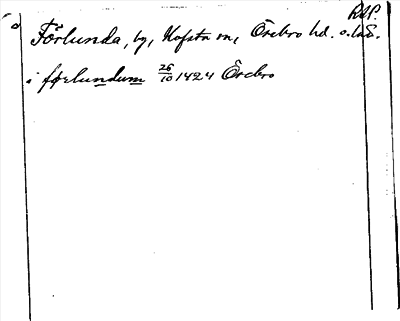 RAP.
Förlunda, by, Hofsta sn, Örebro hd. o. län.
i førlundum 26/10 1424 Örebro